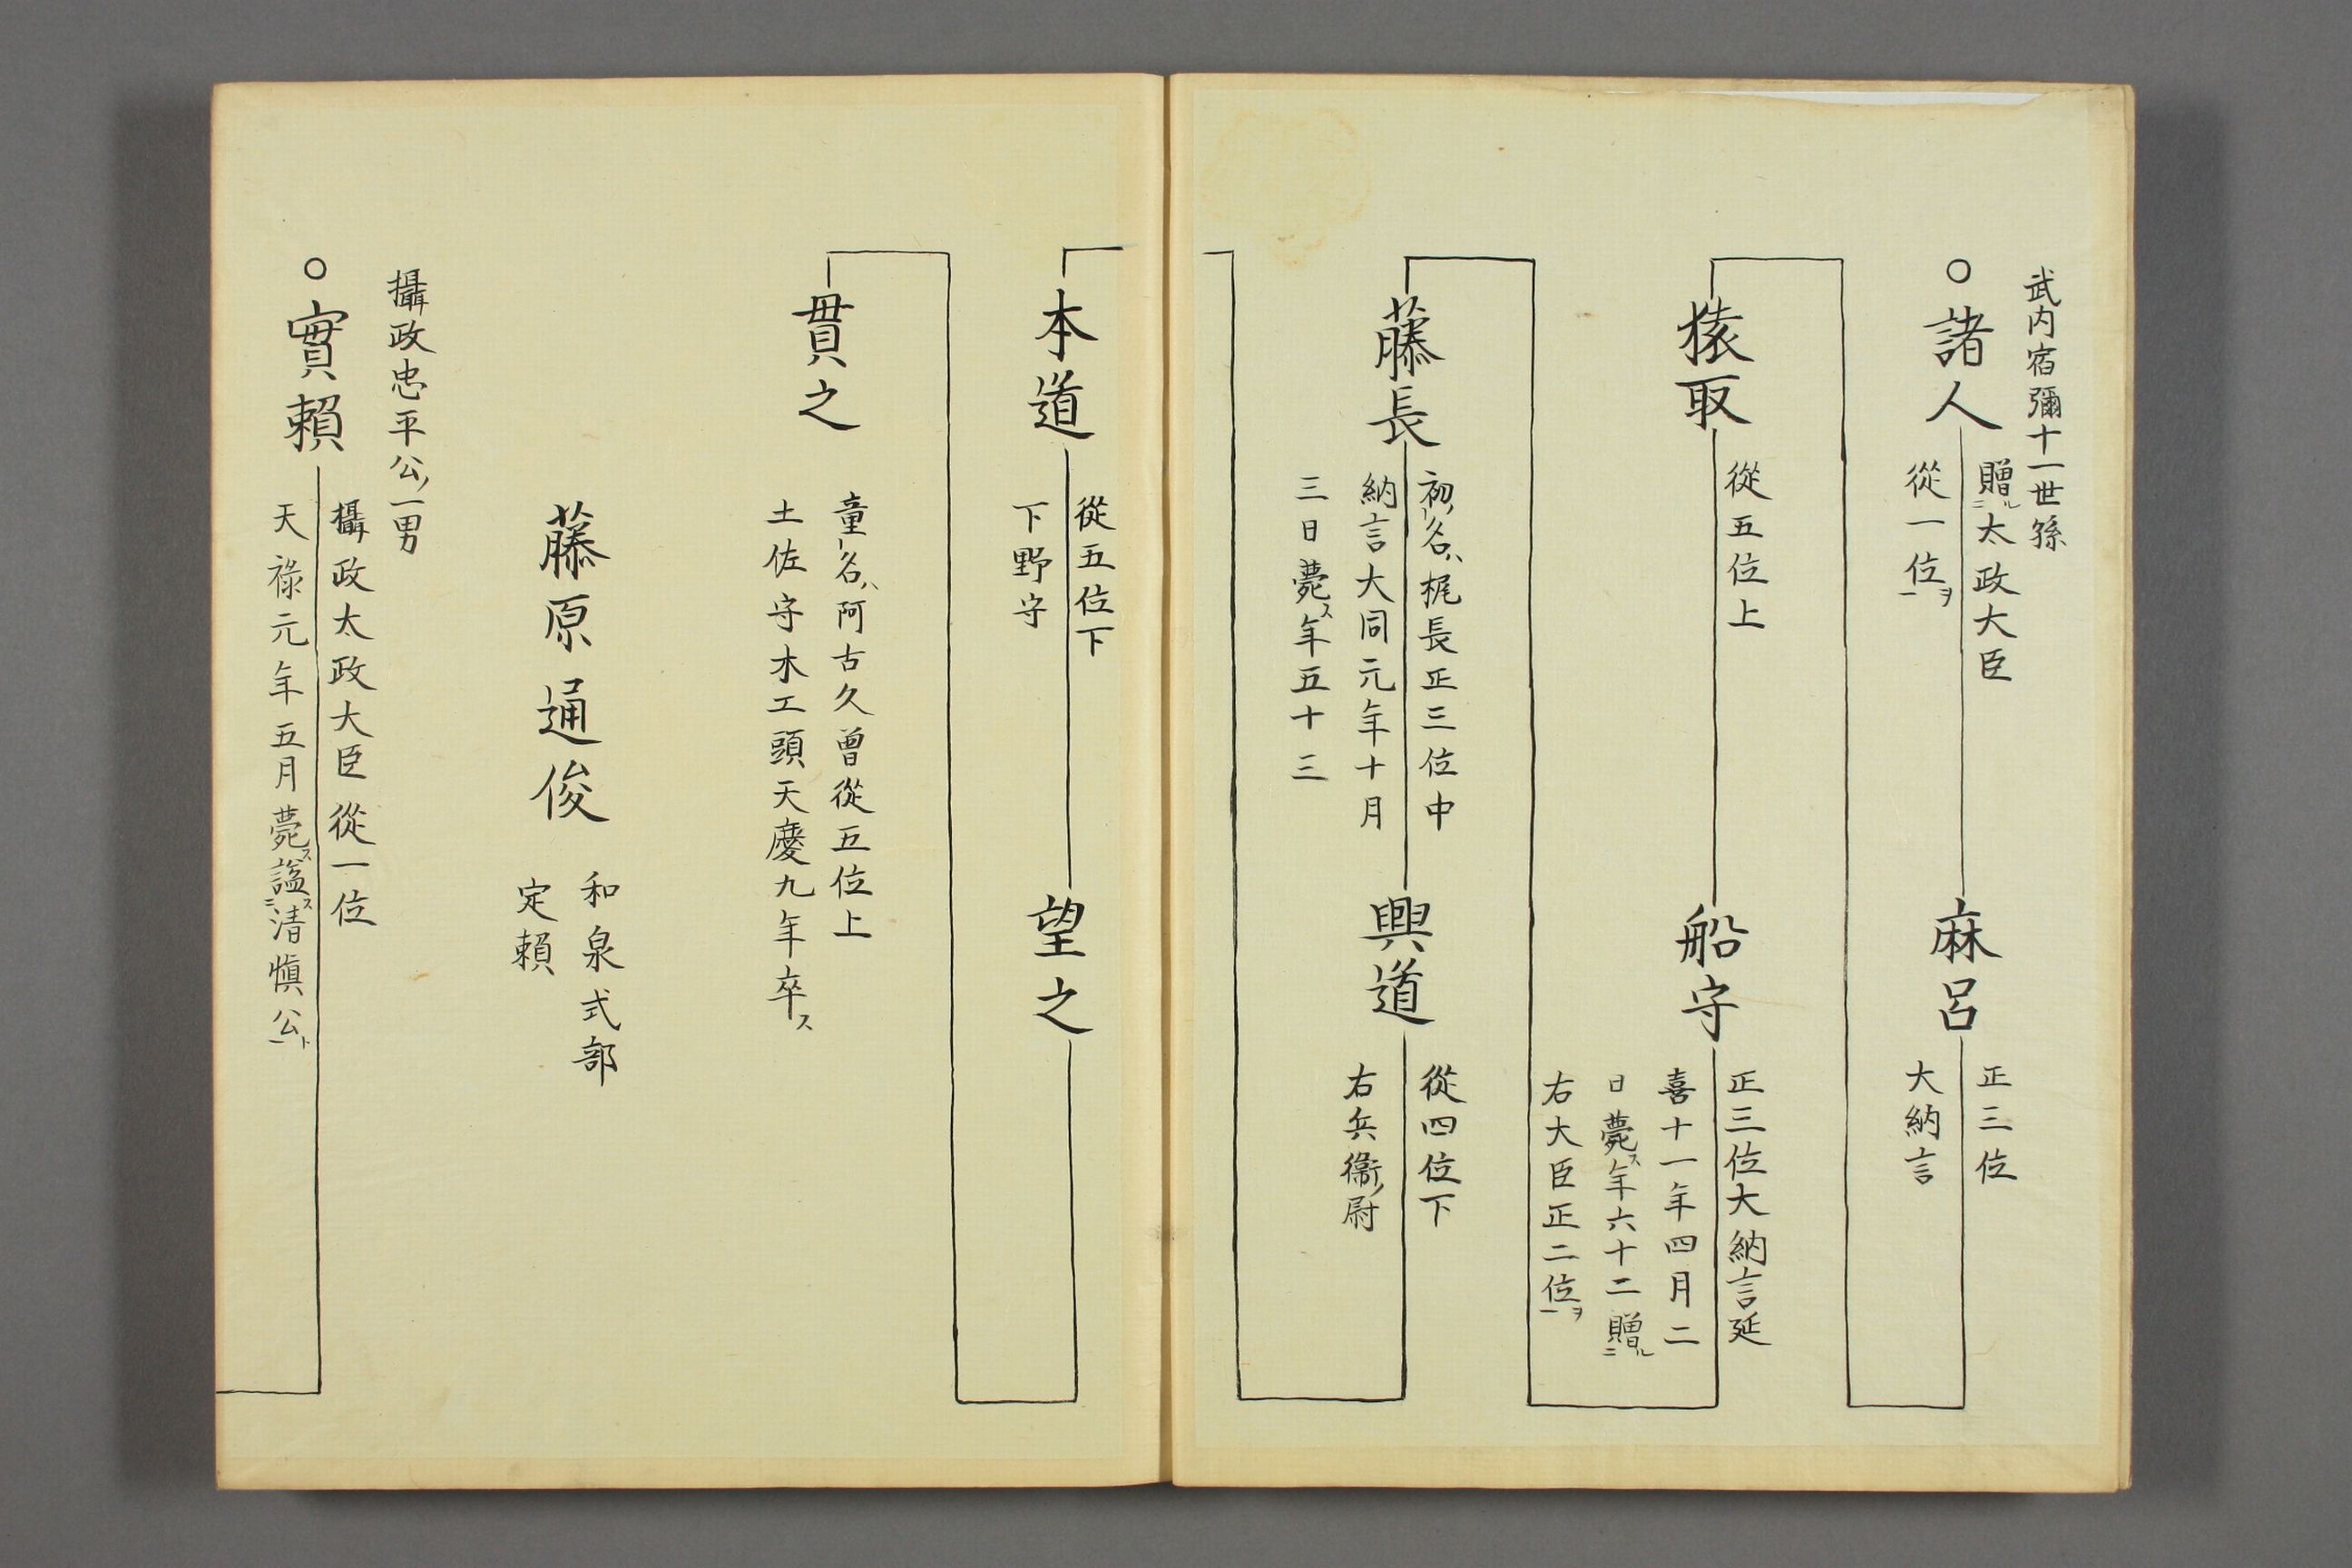 武内宿彌十一世孫
○諸人
贈ル二太政大臣
從一位ヲ一
麻呂
正三位
大納言
猿取
從五位上
船守
正三位大納言延
喜十一年四月二
日薨ス年六十二贈ル二
右大臣正二位ヲ一
藤長
初ノ名ハ梶長正三位中
納言大同元年十月
三日薨ス年五十三
興道
從四位下
右兵衞ノ尉
本道
從五位下
下野守
望之
貫之
童名ハ阿古久曾從五位上
土佐守木工頭天慶九年卒ス
藤原通俊
和泉式部
定賴
攝政忠平公ノ一男
○實賴
攝政太政大臣從一位
天祿元年五月薨ス諡ス二清愼公ト一